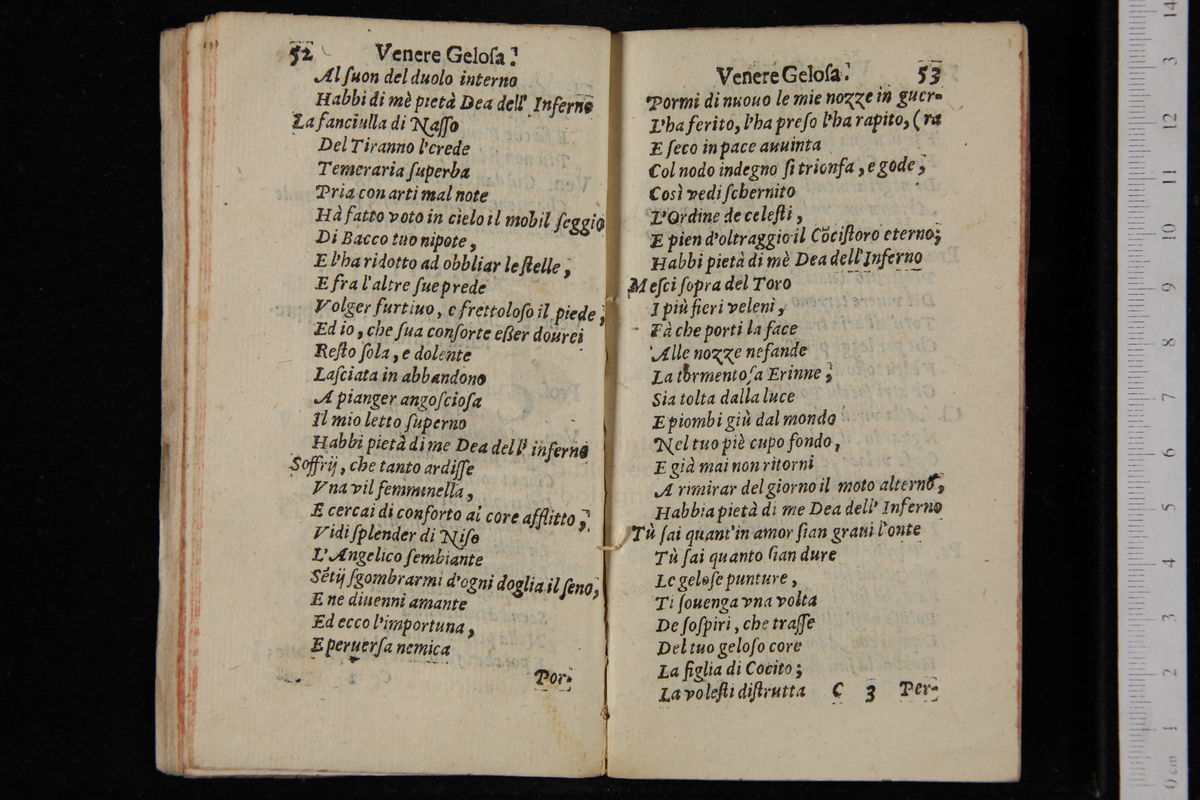 52 Venere Gelosa.
Al ſuon del duolo interno
Habbi di mè pietà Dea dell' Inferno
La fanciulla di Naſſo
Del Tiranno l'erede
Temeraria ſuperba
Pria con arti mal note
Hà fatto voto in cielo il mobil ſeggio
Di Bacco tuo nipote,
E l'ha ridotto ad obbliar le ſtelle,
E fra l'altre ſue prede
Volger furtiuo, e frettoloſo il piede;
Ed io, che ſua conſorte eſſer dourei
Reſto ſola, e dolente
Laſciata in abbandono
A pianger angoſcioſa
Il mio letto ſuperno
Habbi pietà di me Dea dell' inferno
Soffrij, che tanto ardiſſe
Vna vil femminella,
E cercai di conforto al core afflitto,
Vidi ſplender di Niſo
L'Angelico ſembiante
Sētij ſgombrarmi d'ogni doglia il ſeno,
E ne diuenni amante
Ed ecco l'importuna,
E peruerſa nemica
Por-
Venere Geloſa. 53
Pormi di nuouo le mie nozze in guer-
L'ha ferito, l'ha preſo l'ha rapito, (ra
E ſeco in pace auuinta
Col nodo indegno ſi trionfa, e gode,
Così vedi ſchernito
L'Ordine de celeſti,
E pien d'oltraggio il Cōciſtoro eterno;
Habbi pietà di mè Dea dell'Inferno
Meſci ſopra del Toro
I più fieri veleni,
Fà che porti la face
Alle nozze nefande
La tormentoſa Erinne;
Sia tolta dalla luce
E piombi giù dal mondo
Nel tuo piè cupo fondo,
E già mai non ritorni
A rimirar del giorno il moto alterno,
Habbia pietà di me Dea dell' Inferno
Tù ſai quant'in amor ſian graui l'onte
Tù ſai quanto ſian dure
Le geloſe punture,
Ti ſouenga vna volta
De ſoſpiri, che traſſe
Del tuo geloſo core
La figlia di Cocito;
La voleſti diſtrutta C 3 Per-